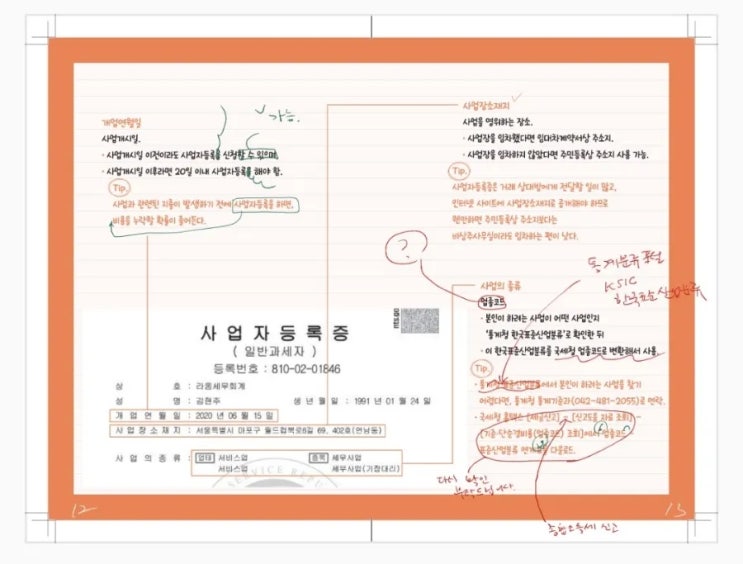 개업연월일
사업개시일.
· 사업개시일 이전이라도 사업자등록을 신청할 수 있으며,
· 사업개시일 이후라면 20일 이내 사업자등록을 해야 함.
가능.
Tip.
사업과 관련된 지출이 발생하기 전에 사업자등록을 하면,
비용을 누락할 확률이 줄어든다.
사업장소재지
사업을 영위하는 장소.
· 사업장을 임차했다면 임대차계약서상 주소지.
· 사업장을 임차하지 않았다면 주민등록상 주소지 사용 가능.
Tip.
사업자등록증은 거래 상대방에게 전달할 일이 많고,
인터넷 사이트에 사업장소재지로 공개해야 하므로
웬만하면 주민등록상 주소지보다는
비상주사무실이라도 임차하는 편이 낫다.
?
사업의 종류
업종코드
· 본인이 하려는 사업이 어떤 사업인지
'통계청 한국표준산업분류'로 확인한 뒤
· 이 한국표준산업분류를 국세청 업종코드로 변환해서 사용.
통계분류포털
KSIC
한국표준산업분류
Tip.
· 통계청 표준산업분류에서 본인이 하려는 사업을 찾기
어렵다면, 통계청 통계기준과(042-481-2055)로 연락.
· 국세청 홈택스 [세금신고] - [신고도움 자료 조회] -
[기준·단순경비율(업종코드) 조회]에서 업종코드-
표준산업분류 연계표를 다운로드.
다시 확인
부탁드립니다.
종합소득세 신고
사업자등록증
( 일반과세자 )
등록번호 : 810-02-01846
상 호 : 라움세무회계
성 명 : 김현주 생 년 월 일 : 1991 년 01 월 24 일
개 업 연 월 일 : 2020 년 06 월 15 일
사 업 장 소 재 지 : 서울특별시 마포구 월드컵북로6길 69, 402호(연남동)
사 업 의 종 류 : 업태 서비스업 종목 세무사업
서비스업 세무사업(기장대리)
12
13